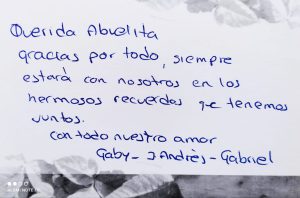 Querida Abuelita
gracias por todo, siempre
estará con nosotros en los
hermosos recuerdos que tenemos
juntos.
con todo nuestro amor
Gaby - J Andrés - Gabriel